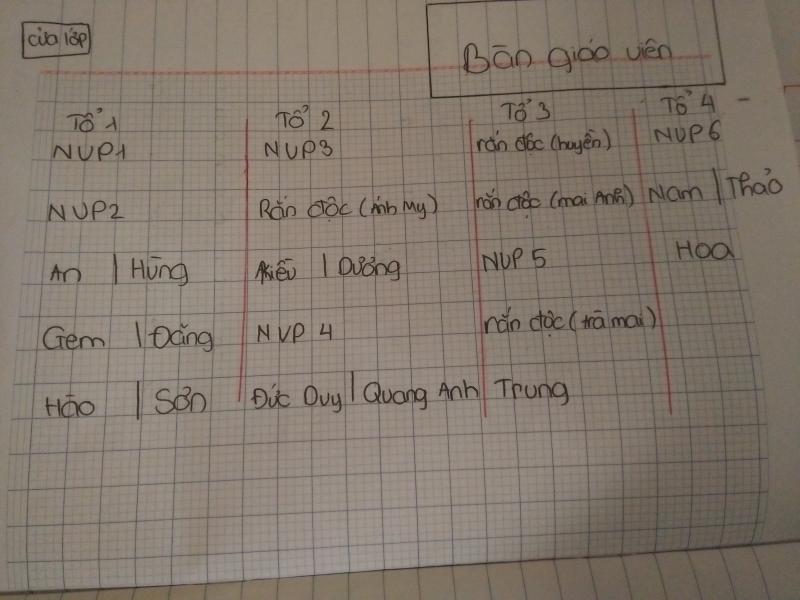 cửa lớp
Bàn giáo viên
Tổ 1 Tổ 2 Tổ 3 Tổ 4
NVP1 NVP3 rắn độc (huyền) NVP6
NVP2 Rắn độc (Ánh My) rắn độc (mai Anh) Nam | Thảo
An | Hùng Kiều | Dương NVP5 Hoa
Gem | Đăng NVP 4 rắn độc (trà mai)
Hào | Sơn Đức Duy | Quang Anh Trung